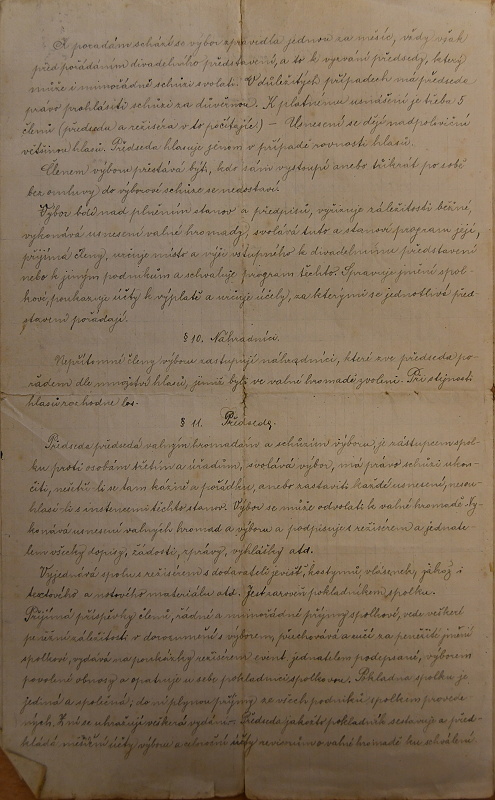 K poradám schází se výbor zpravidla jednou za měsíc, vždy však
před pořádáním divadelního představení, a to k vyzvání předsedy, který
může i mimořádné schůze svolati. V důležitých případech má předseda
právo prohlásiti schůzi za důvěrnou. K platnému usnášení je třeba 5
členů (předseda a režiséra v to počítajíc) – Usnesení se dějí nadpoloviční
většinou hlasů. Předseda hlasuje jenom v případě rovnosti hlasů.
Členem výboru přestává býti, kdo sám vystoupí anebo třikrát po sobě
bez omluvy do výborové schůze se nedostaví.
Výbor bdí nad plněním stanov a předpisů, vyřizuje záležitosti běžné,
vykonává usnesení valné hromady, svolává tuto a stanoví program její,
přijímá členy, určuje místo a výši vstupného k divadelnímu představení
nebo k jiným podnikům a schvaluje program těchto. Spravuje jmění spol-
kové, poukazuje účty k výplatě a určuje účely, za kterými se jednotlivá před-
stavení pořádají.
§ 10. Náhradníci.
Nepřítomné členy výboru zastupují náhradníci, které zve předseda po-
řadem dle množství hlasů, jimiž byli ve valné hromadě zvoleni. Při stejnosti
hlasů rozhodne los.
§ 11. Předseda.
Předseda předsedá valným hromadám a schůzím výboru, je zástupcem spol-
ku proti osobám třetím a úřadům, svolává výbor, má právo schůzi ukon-
čiti, neštíží-li se tam kázní a pořádku, anebo zastaviti každé usnesení, nesou-
hlasí-li s intencemi těchto stanov. Výbor se může odvolati k valné hromadě. Vy-
konává usnesení valných hromad a výboru a podpisuje s režisérem a jednate-
lem všecky dopisy, žádosti, zprávy, vyhlášky atd.
Vyjednává spolu s režisérem s dodavateli jevišť, kostymů, vlásenek,
textového a notového materiálu atd. Jest zároveň pokladníkem spolku.
Přijímá příspěvky členů, řádné a mimořádné příjmy spolkové, vede veškeré
peněžní záležitosti v dorozumění s výborem, přechovává a ručí za peněžití jmění
spolkové, vydává na poukázky režisérem event. jednatelem podepsané, výborem
povolené obnosy a opatruje u sebe pokladnu spolkovou. Pokladna spolku je
jedna a společná; do ní plynou příjmy ze všech podniků spolkem provede-
ných. Z ní se uhrazují veškerá vydání. Předseda jakožto pokladník sestavuje a před-
kládá měsíční účty výboru a celoroční účty revisorům a valné hromadě ku schválení.